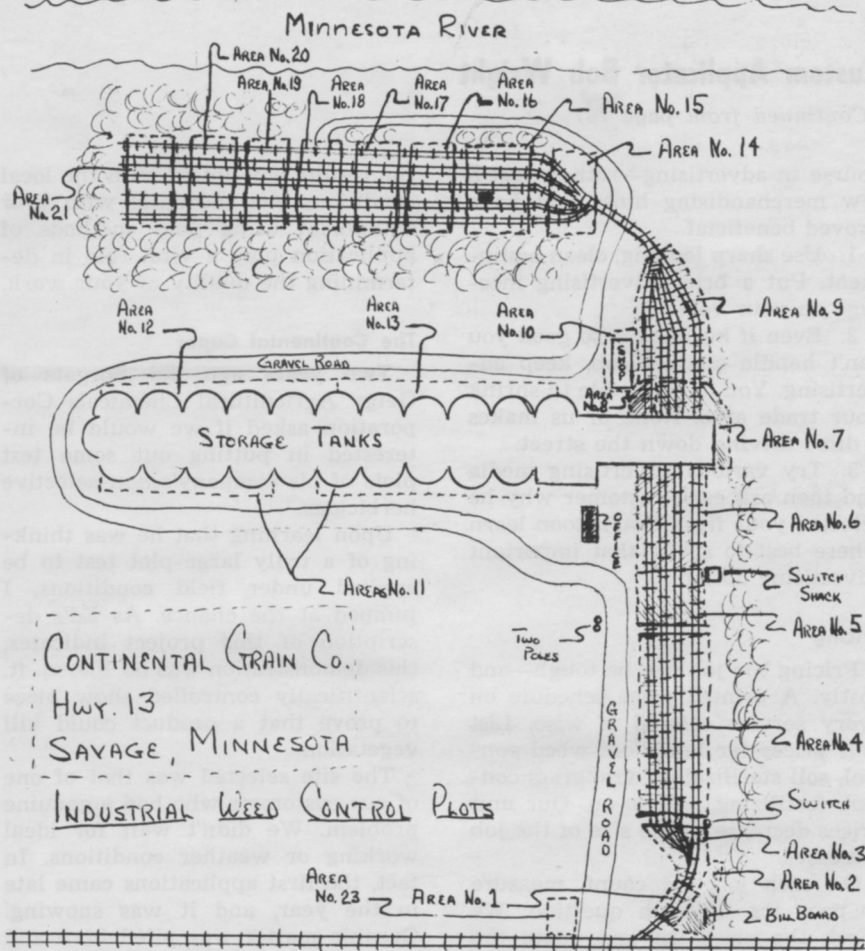 MINNESOTA RIVER
AREA No. 20
AREA No.19
AREA No.18
AREA No.17
AREA No.16
AREA No. 15
AREA No. 14
AREA No.21
AREA No.12
AREA No.13
AREA No.10
AREA No.9
GRAVEL ROAD
TOILET
AREA No.8
STORAGE TANKS
AREA No.7
OFFICE
AREA No.6
SWITCH SHACK
AREAS No.11
AREA No.5
TWO POLES
CONTINENTAL TRAIN CO.
HWY. 13
SAVAGE, MINNESOTA
INDUSTRIAL WEED CONTROL PLOTS
GRAVEL ROAD
AREA No.4
SWITCH
AREA No.3
AREA No.2
AREA No. 23
AREA No.1
BILLBOARD